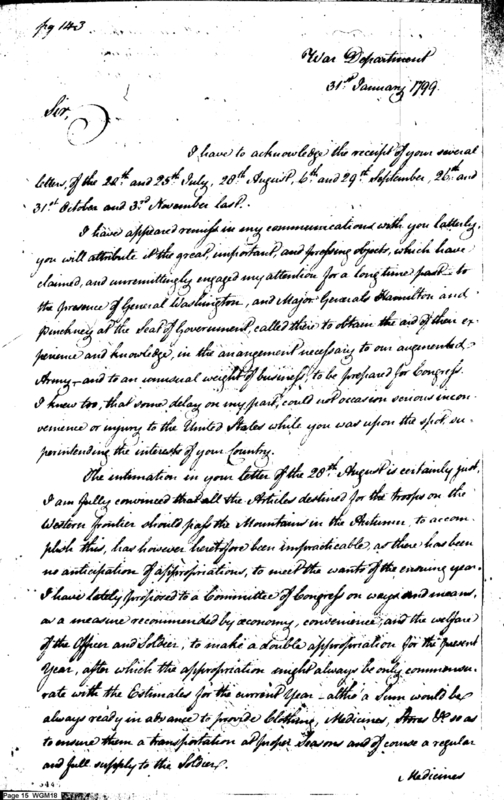 pg 143
War Department
31st January 1799.
Sir,
I have to acknowledge the receipt of your several
letters, of the 22th and 25th July, 28th August, 6th and 29th September, 26th and
31st October and 3rd November last.
I have appeared remiss in my communications with you latterly,
you will attribute it the great, important, and pressing objects, which have
claimed, and unremittingly engaged my attention for a long time past – to
the presence of General Washington, and Major Generals Hamilton and
Pinckney at the Seat of Government, called their to obtain the aid of their ex-
perience and knowledge, in the arrangement necessary to our augmented
Army – and to an unusual weight of business, to be prepared for Congress.
I knew too, that some delay on my part, could not occasion serious incon-
venience or injury to the United States while you was upon the spot, su-
perintending the interests of your Country.
The intimation in your letter of the 28th August is certainly just,
I am fully convinced that all the Articles destined for the troops on the
Western frontier should pass the Mountains in the Autumn, to accom-
plish this, has however heretofore been impracticable, as there has been
no anticipation of appropriations, to meet the wants of the ensuing year.
I have lately proposed to a Committee of Congress on ways and means,
as a measure recommended by œconomy, convenience, and the welfare
of the Officer and Soldier, to make a double appropriation for the present
Year, after which the appropriation might always be only commensu-
rate with the Estimates for the current Year – altho' a Sum would be
always ready in advance to provide Clothing, Medicines, Stores &c so as
to ensure them a transportation at proper Seasons and of course a regular
and full supply to the Soldier.
Medicines
Page 15 WGM18